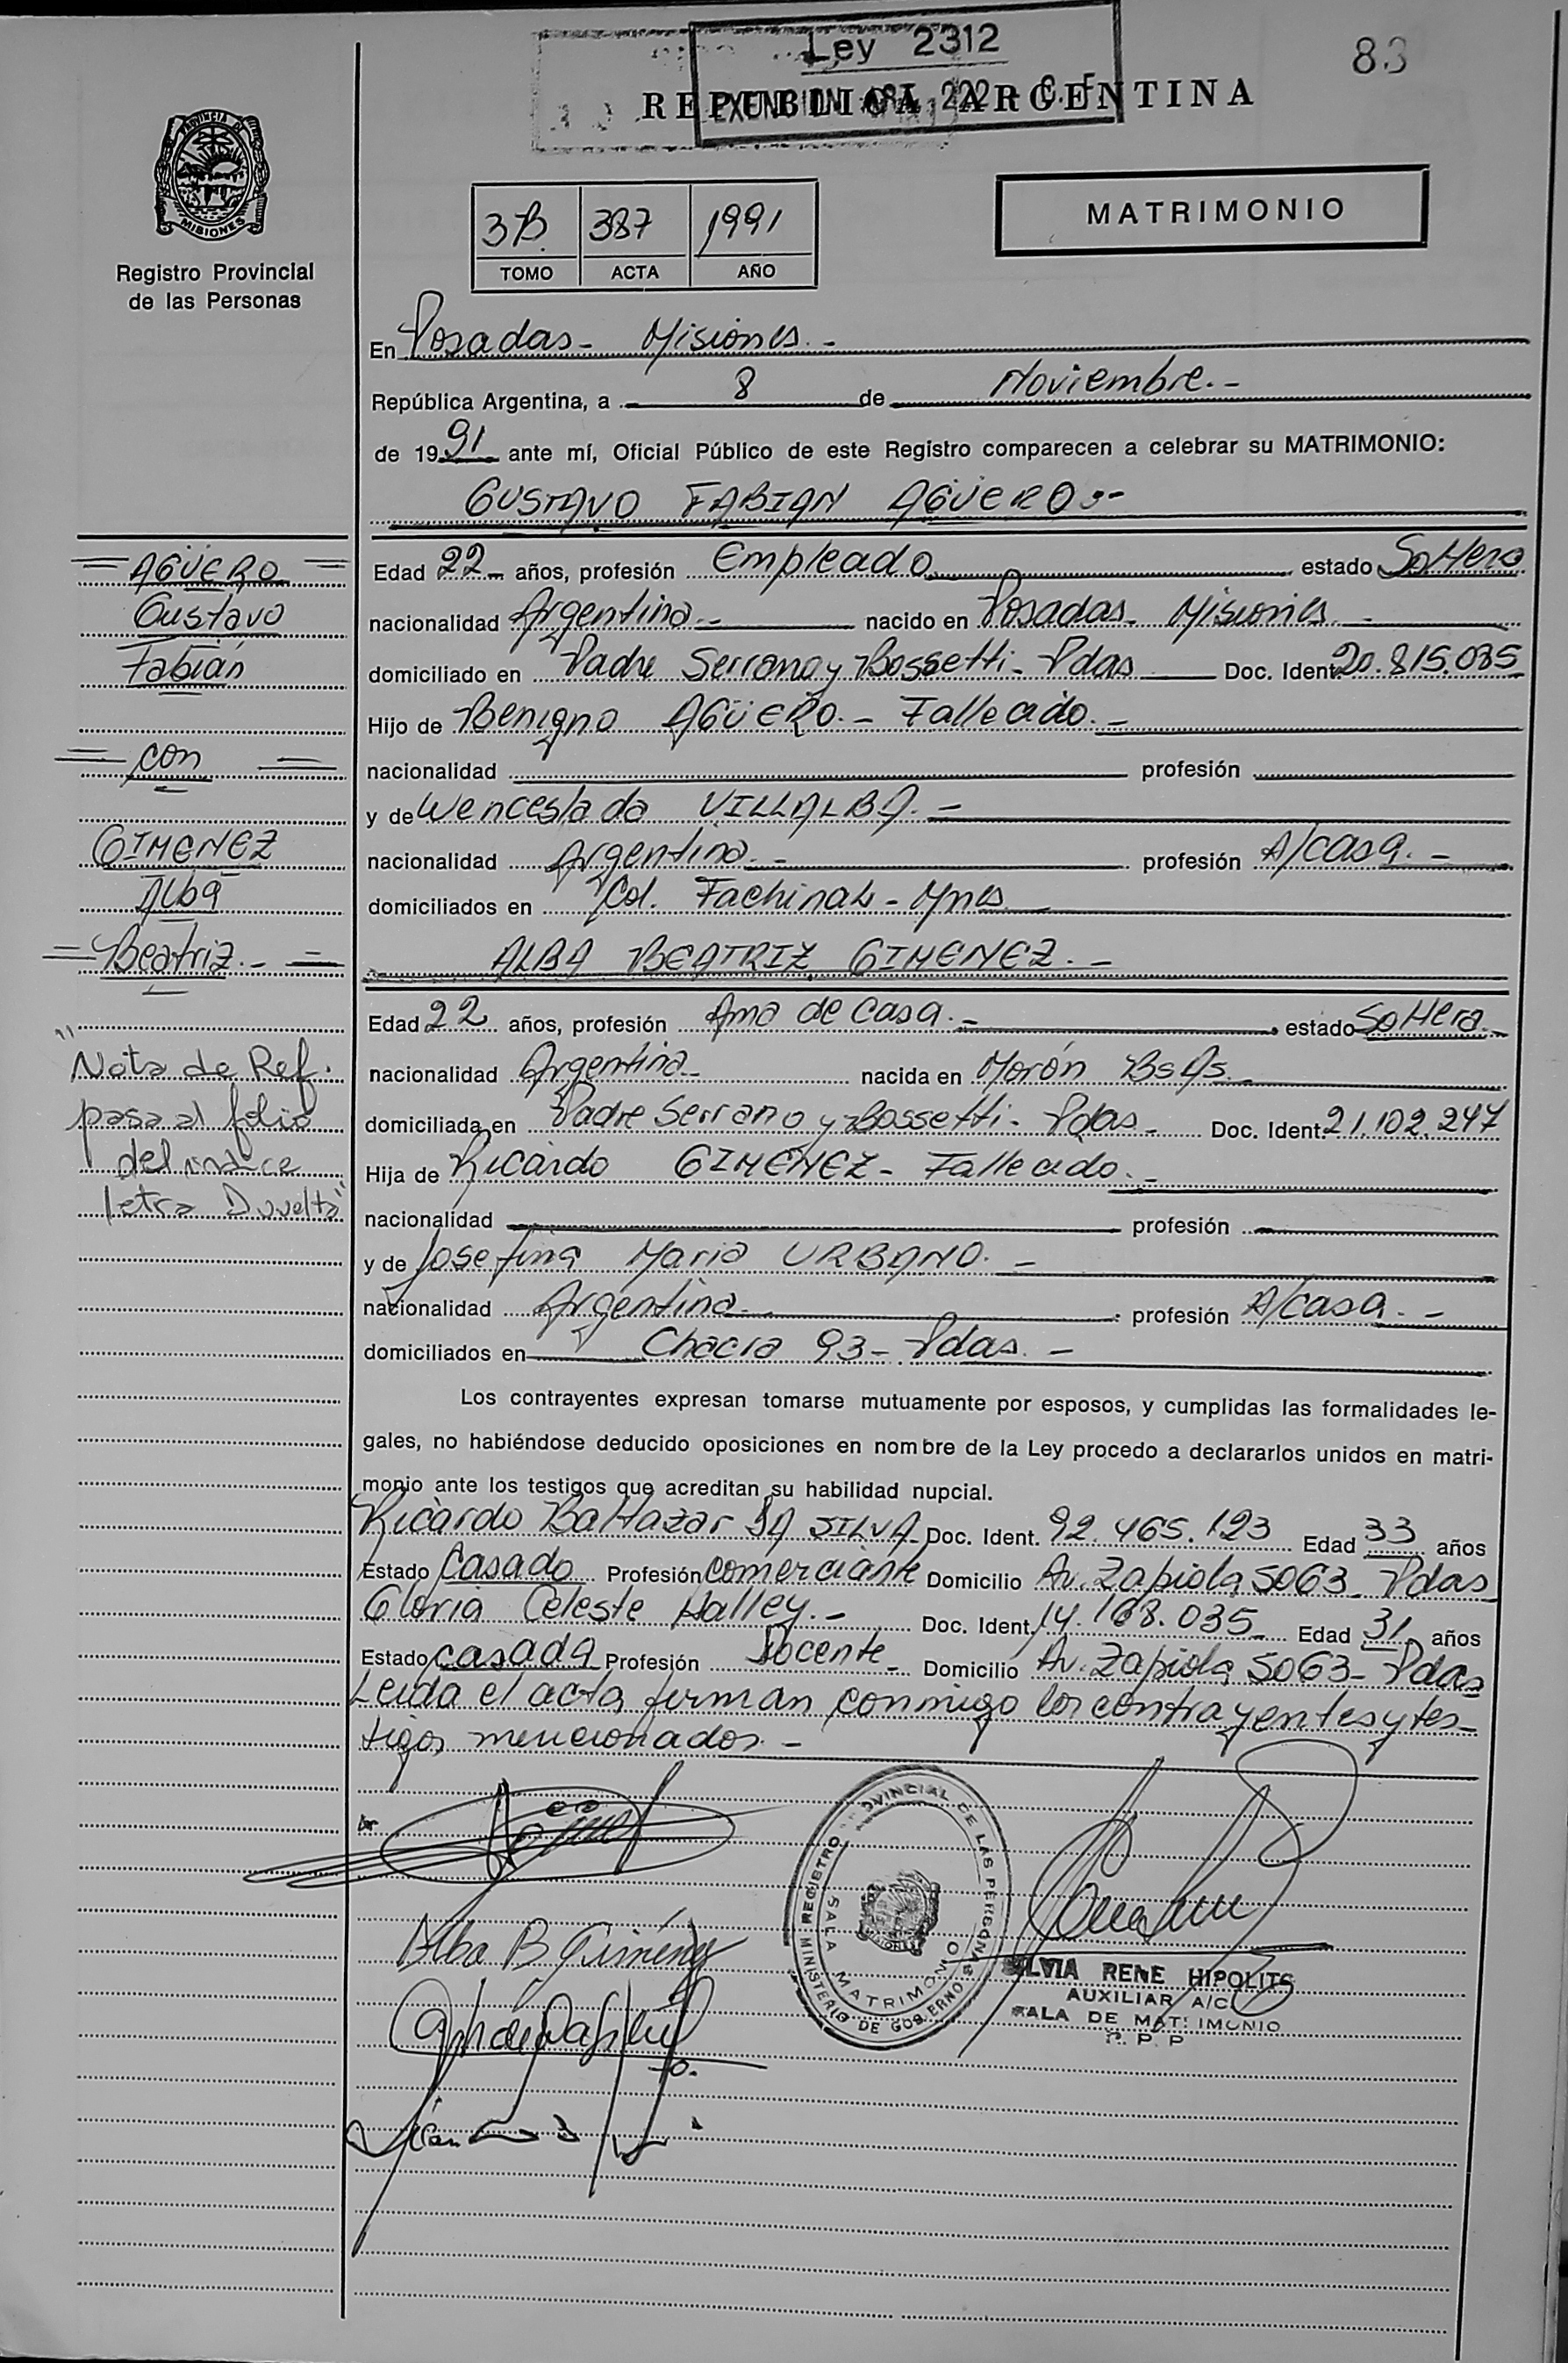 Ley 2312
83
REPUBLICA ARGENTINA
PROVINCIA DE
MISIONES
Registro Provincial
de las Personas
3B. 387 1991
TOMO ACTA AÑO
MATRIMONIO
En Posadas - Misiones. -
República Argentina, a 8 de Noviembre. -
de 1991 ante mí, Oficial Público de este Registro comparecen a celebrar su MATRIMONIO:
GUSTAVO FABIAN AGÜERO.-
Edad 22 - años, profesión Empleado estado Soltero
nacionalidad Argentina. - nacido en Posadas - Misiones -
domiciliado en Padre Serrano y Bossetti - Pdas Doc. Ident. 20.815.085
Hijo de Benigno AGÜERO. - Fallecido. -
nacionalidad profesión
y de Wenceslada VILLALBA. -
nacionalidad Argentina. - profesión A/casa. -
domiciliados en Col. Fachinal - Mnes
ALBA BEATRIZ GIMENEZ. -
Edad 22 años, profesión Ama de casa. - estado Soltera -
nacionalidad Argentina - nacida en Morón Bs As. -
domiciliada en Padre Serrano y Bossetti - Pdas - Doc. Ident. 21.102.247
Hija de Ricardo GIMENEZ - Fallecido. -
nacionalidad profesión
y de Josefina Maria URBANO. -
nacionalidad Argentina - profesión A/casa. -
domiciliados en Chacra 93 - Pdas. -
= AGÜERO =
Gustavo
Fabián
= con =
GIMENEZ
Alba
= Beatriz. - =
"Nota de Ref.
pasa al folio
del indice
letra D vuelta"
Los contrayentes expresan tomarse mutuamente por esposos, y cumplidas las formalidades le-
gales, no habiéndose deducido oposiciones en nombre de la Ley procedo a declararlos unidos en matri-
monio ante los testigos que acreditan su habilidad nupcial.
Ricardo Baltazar DA SILVA Doc. Ident. 92.465.123 Edad 33 años
Estado Casado Profesión comerciante Domicilio Av. Zapiola 5063 - Pdas
Gloria Celeste Halley. - Doc. Ident. 14.168.035 - Edad 31 años
Estado casada Profesión Docente - Domicilio Av. Zapiola 5063 - Pdas
Leida el acta, firman conmigo los contrayentes y tes-
tigos mencionados. -
Alba B Giménez
REGISTRO PROVINCIAL DE LAS PERSONAS
MINISTERIO DE GOBIERNO
SALA MATRIMONIO
SILVIA RENE HIPOLITS
AUXILIAR A/C
SALA DE MATRIMONIO
R. P. P